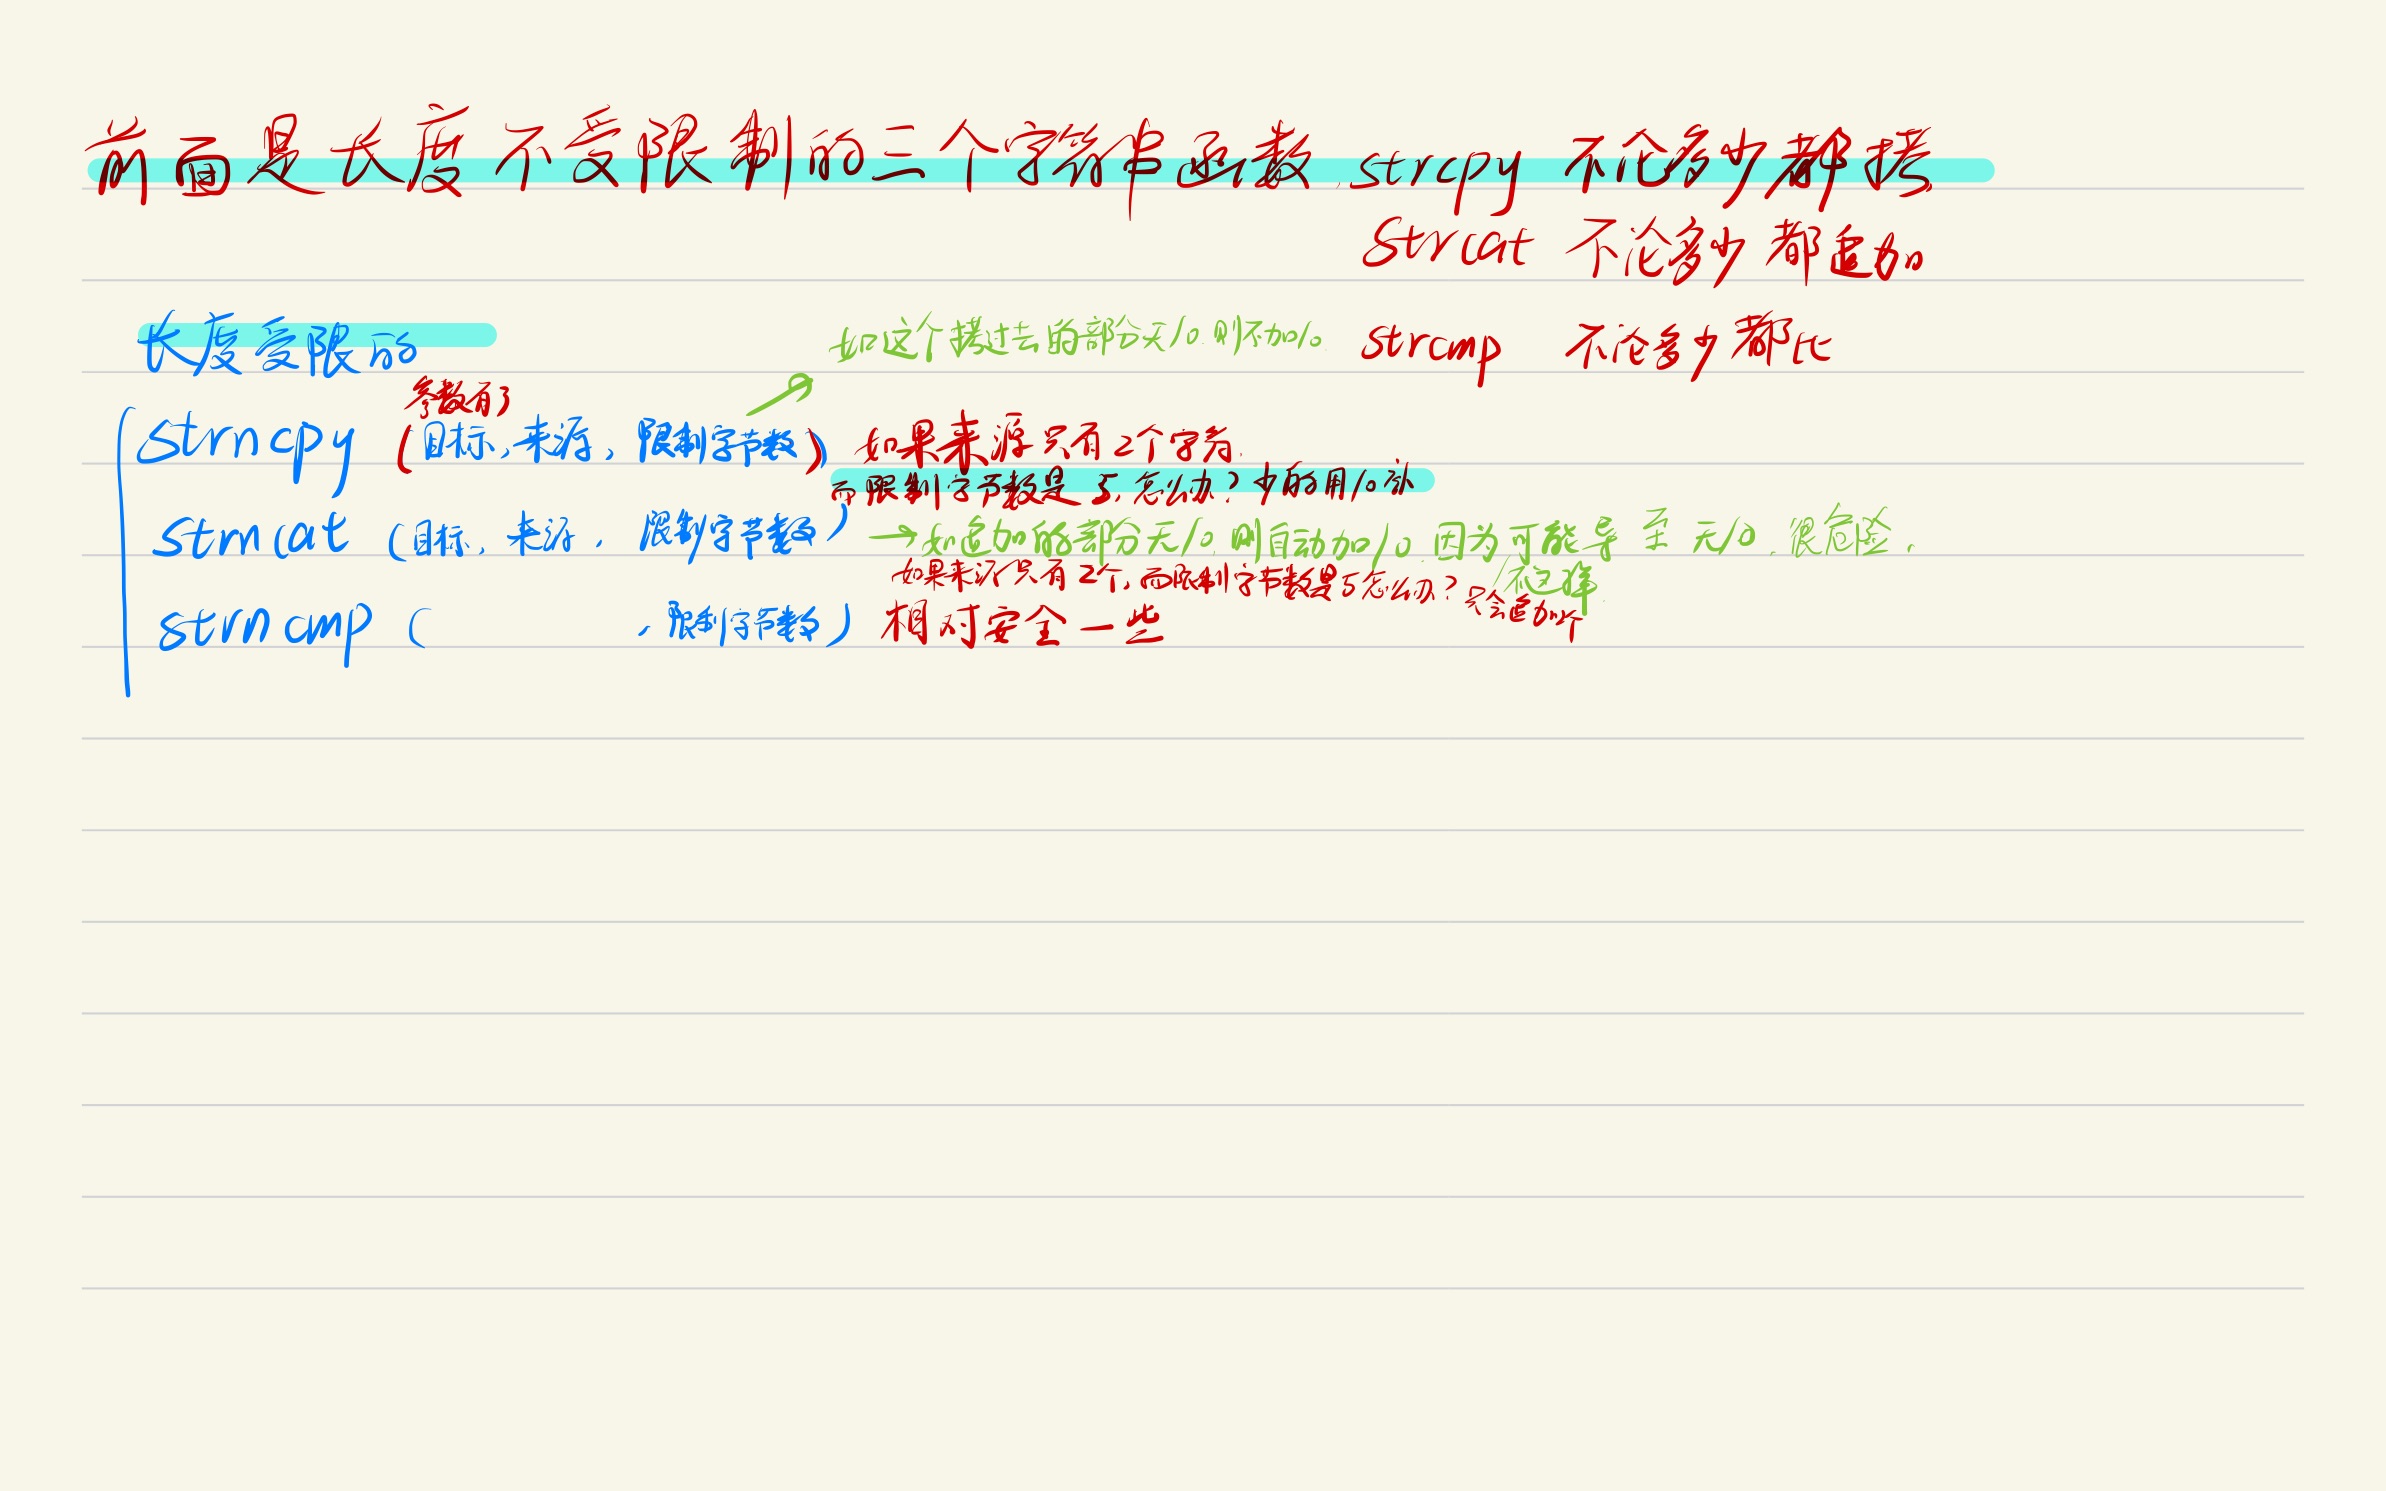 前面是长度不受限制的三个字符串函数. strcpy 不论多少都拷
strcat 不论多少都追加
长度受限的
如这个拷过去的部分无\0.则不加\0.
strcmp 不论多少都比
参数有了
strncpy (目标,来源,限制字节数) 如果来源只有2个字符.
而限制字节数是5,怎么办?少的用\0补
strncat (目标,来源,限制字节数) →如追加的部分无\0,则自动加\0.因为可能导至无\0.很危险.
如果来源只有2个,而限制字节数是5怎么办?只会追加2个
不这样
strncmp ( ,限制字节数) 相对安全一些